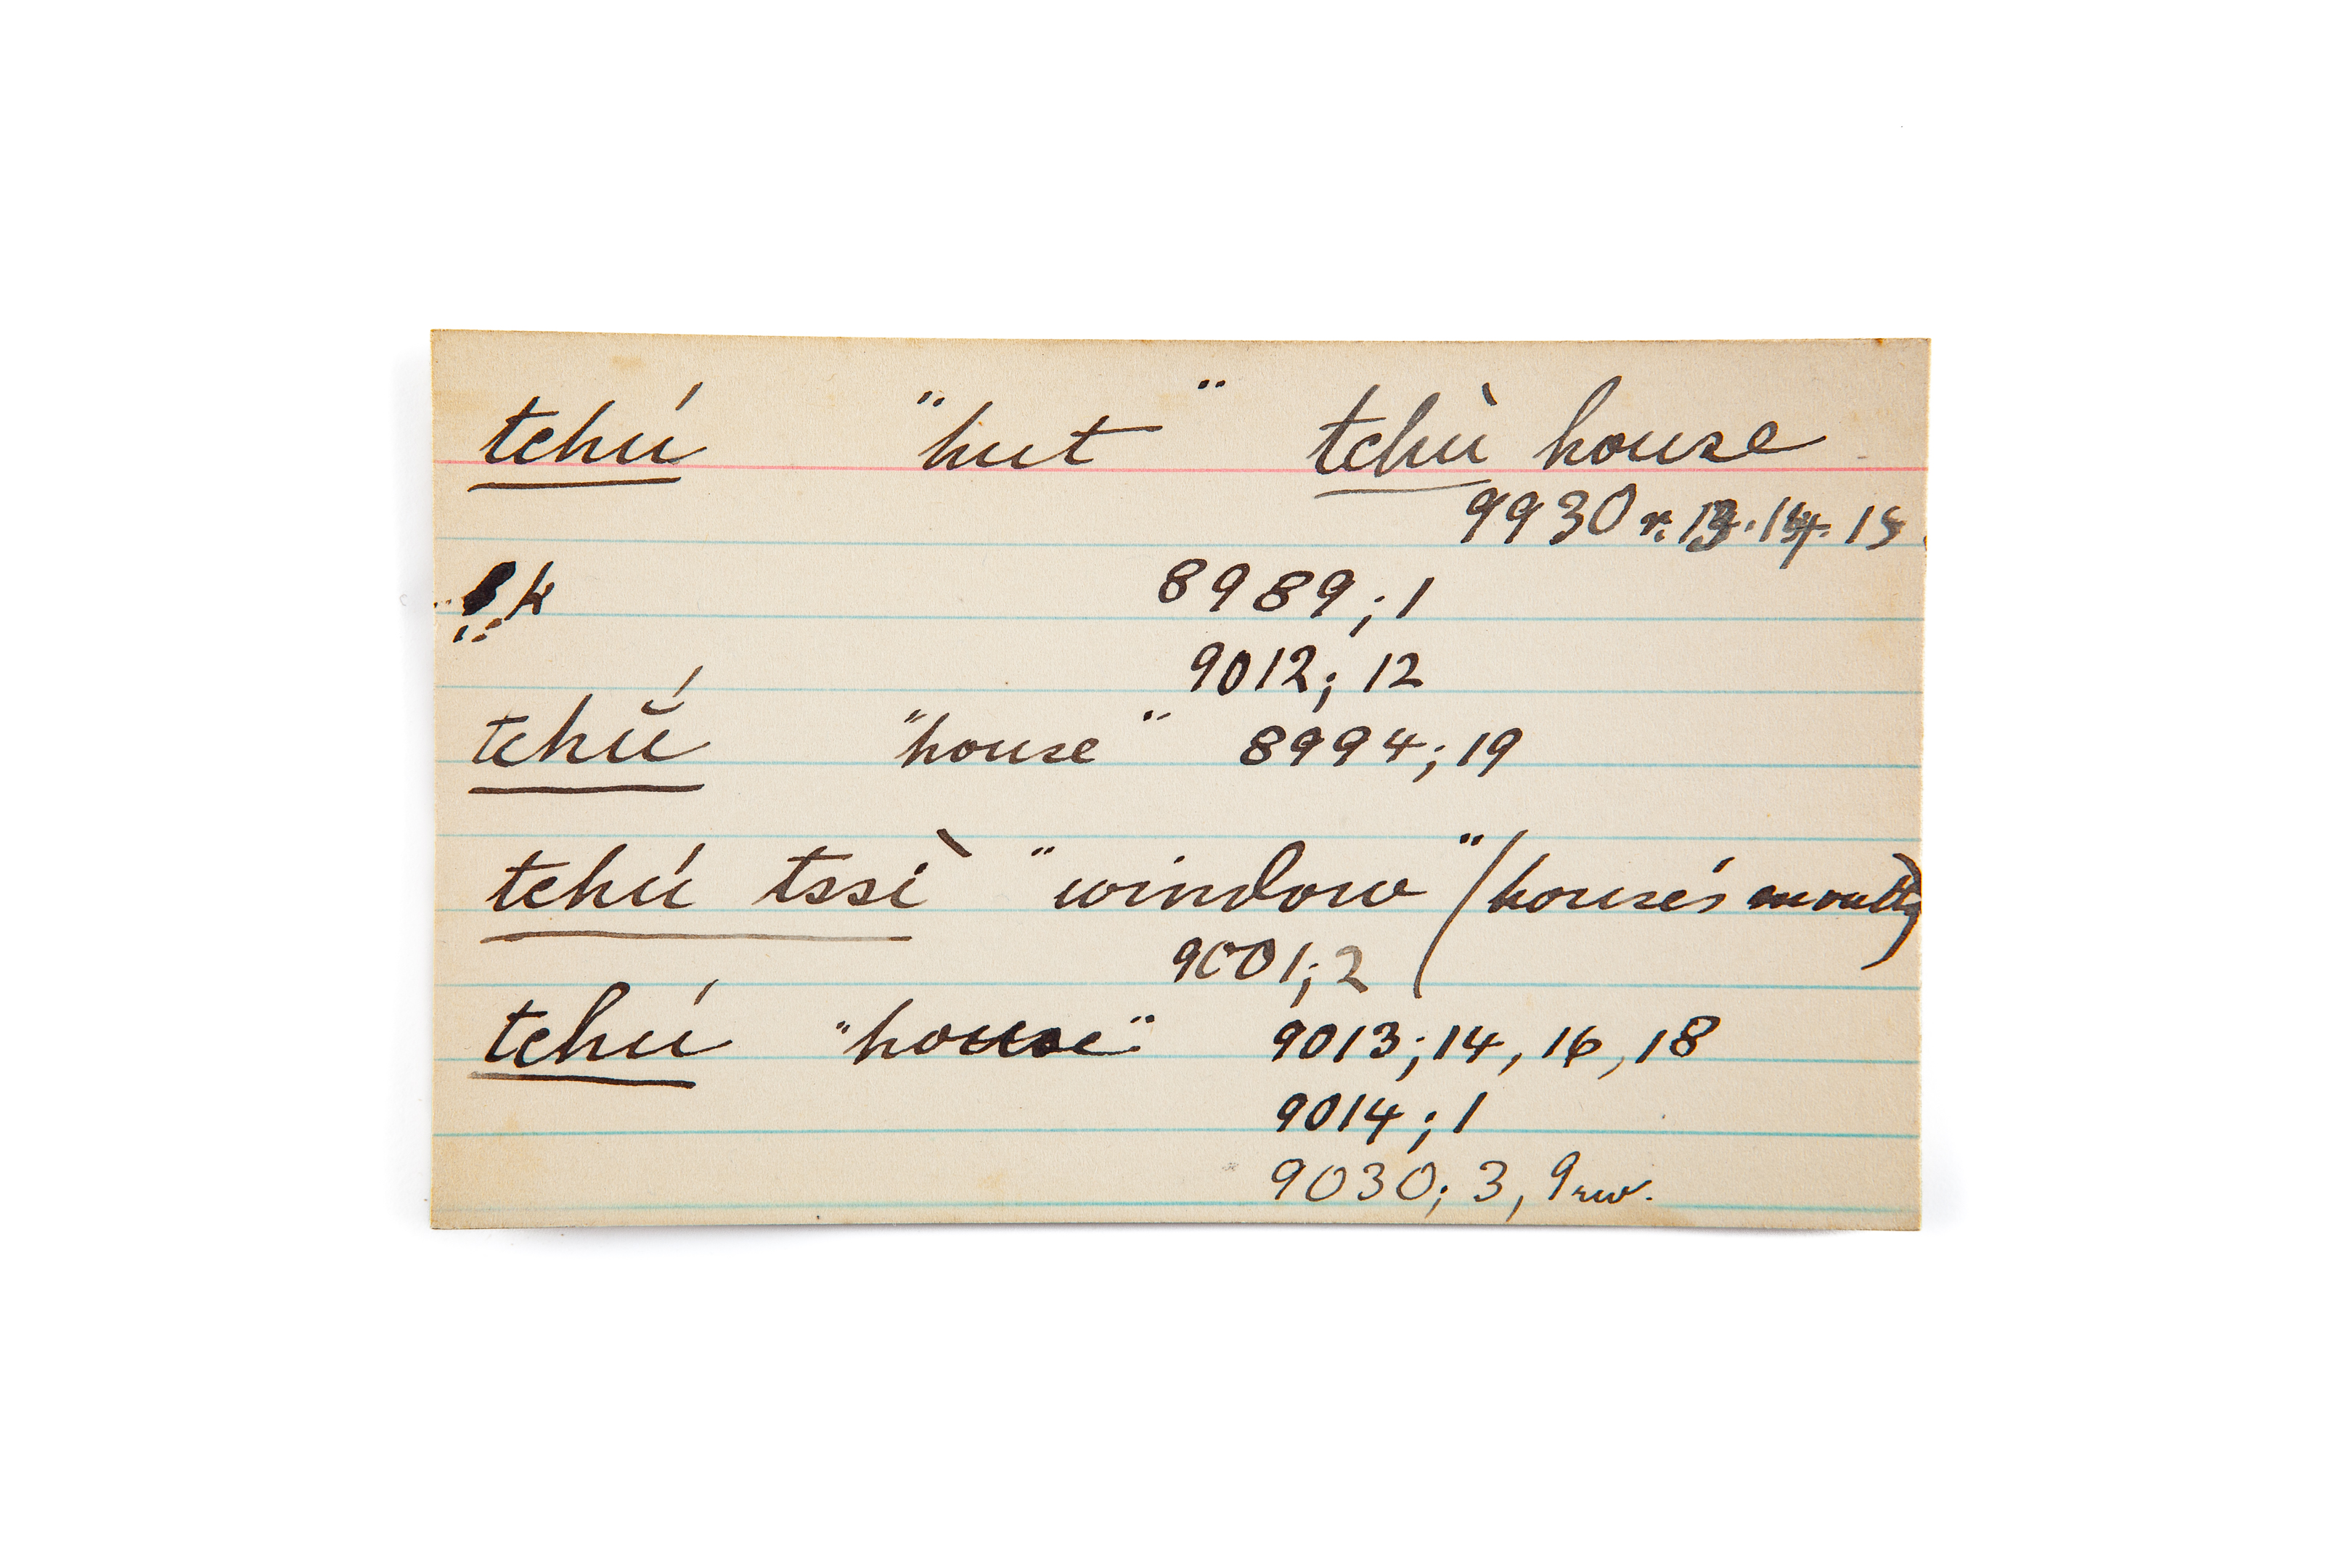 tchú "hut" tchù house
9930 r. 13. 14. 15
k 8989; 1
9012; 12
tchŭ́ "house" 8994; 19
tchú tssì "window" (house's mouth)
9001; 2
tchú "house" 9013; 14, 16, 18
9014; 1
9030; 3, 9 rev.